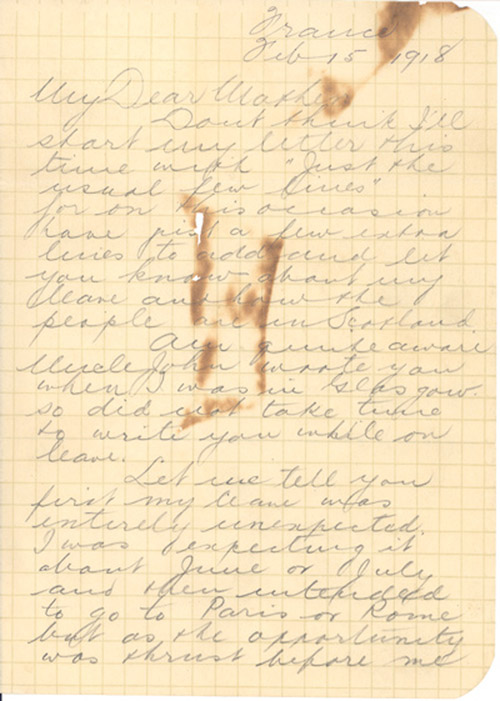 France
Feb 15 1918
My Dear Mother
Dont think I'll
start my letter this
time with "Just the
usual few lines"
for on this occasion
have just a few extra
lines to add and let
you know about my
leave and how the
people are in Scotland.
Am quite aware
Uncle John wrote you
when I was in Glasgow.
so did not take time
to write you while on
leave.
Let me tell you
first my leave was
entirely unexpected.
I was expecting it
about June or July
and then intended
to go to Paris or Rome
but as the opportunity
was thrust before me